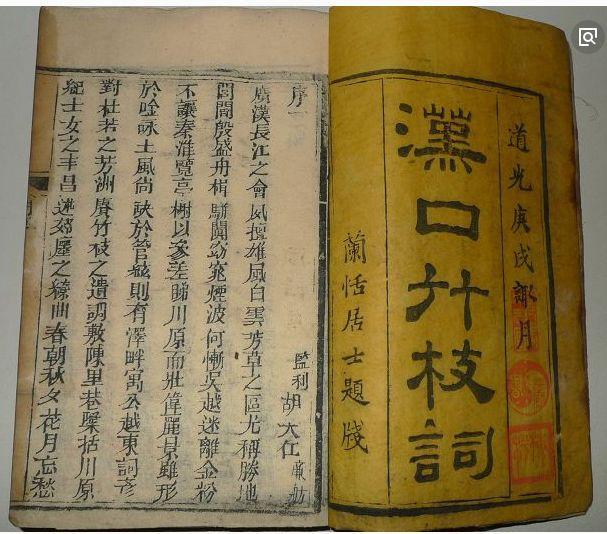 道光庚戌諏月
漢口竹枝詞
蘭恬居士題牋
序一
監利 胡大任 舫
廣漢長江之會夙擅雄風白雲芳草之區尤稱勝地
閭閻殷盛舟楫駢闐窈窕煙波何慚吳越迷離金粉
不讓秦淮覽亭榭以參差睇川原而壯偉麗景雖形
於唫咏土風尚缺於管絃則有澤畔寓公越東詞彥
對杜若之芳洲賡竹枝之遺調敷陳里巷檃括川原
紀士女之丰昌述郊之繚曲春朝秋夕花月忘愁